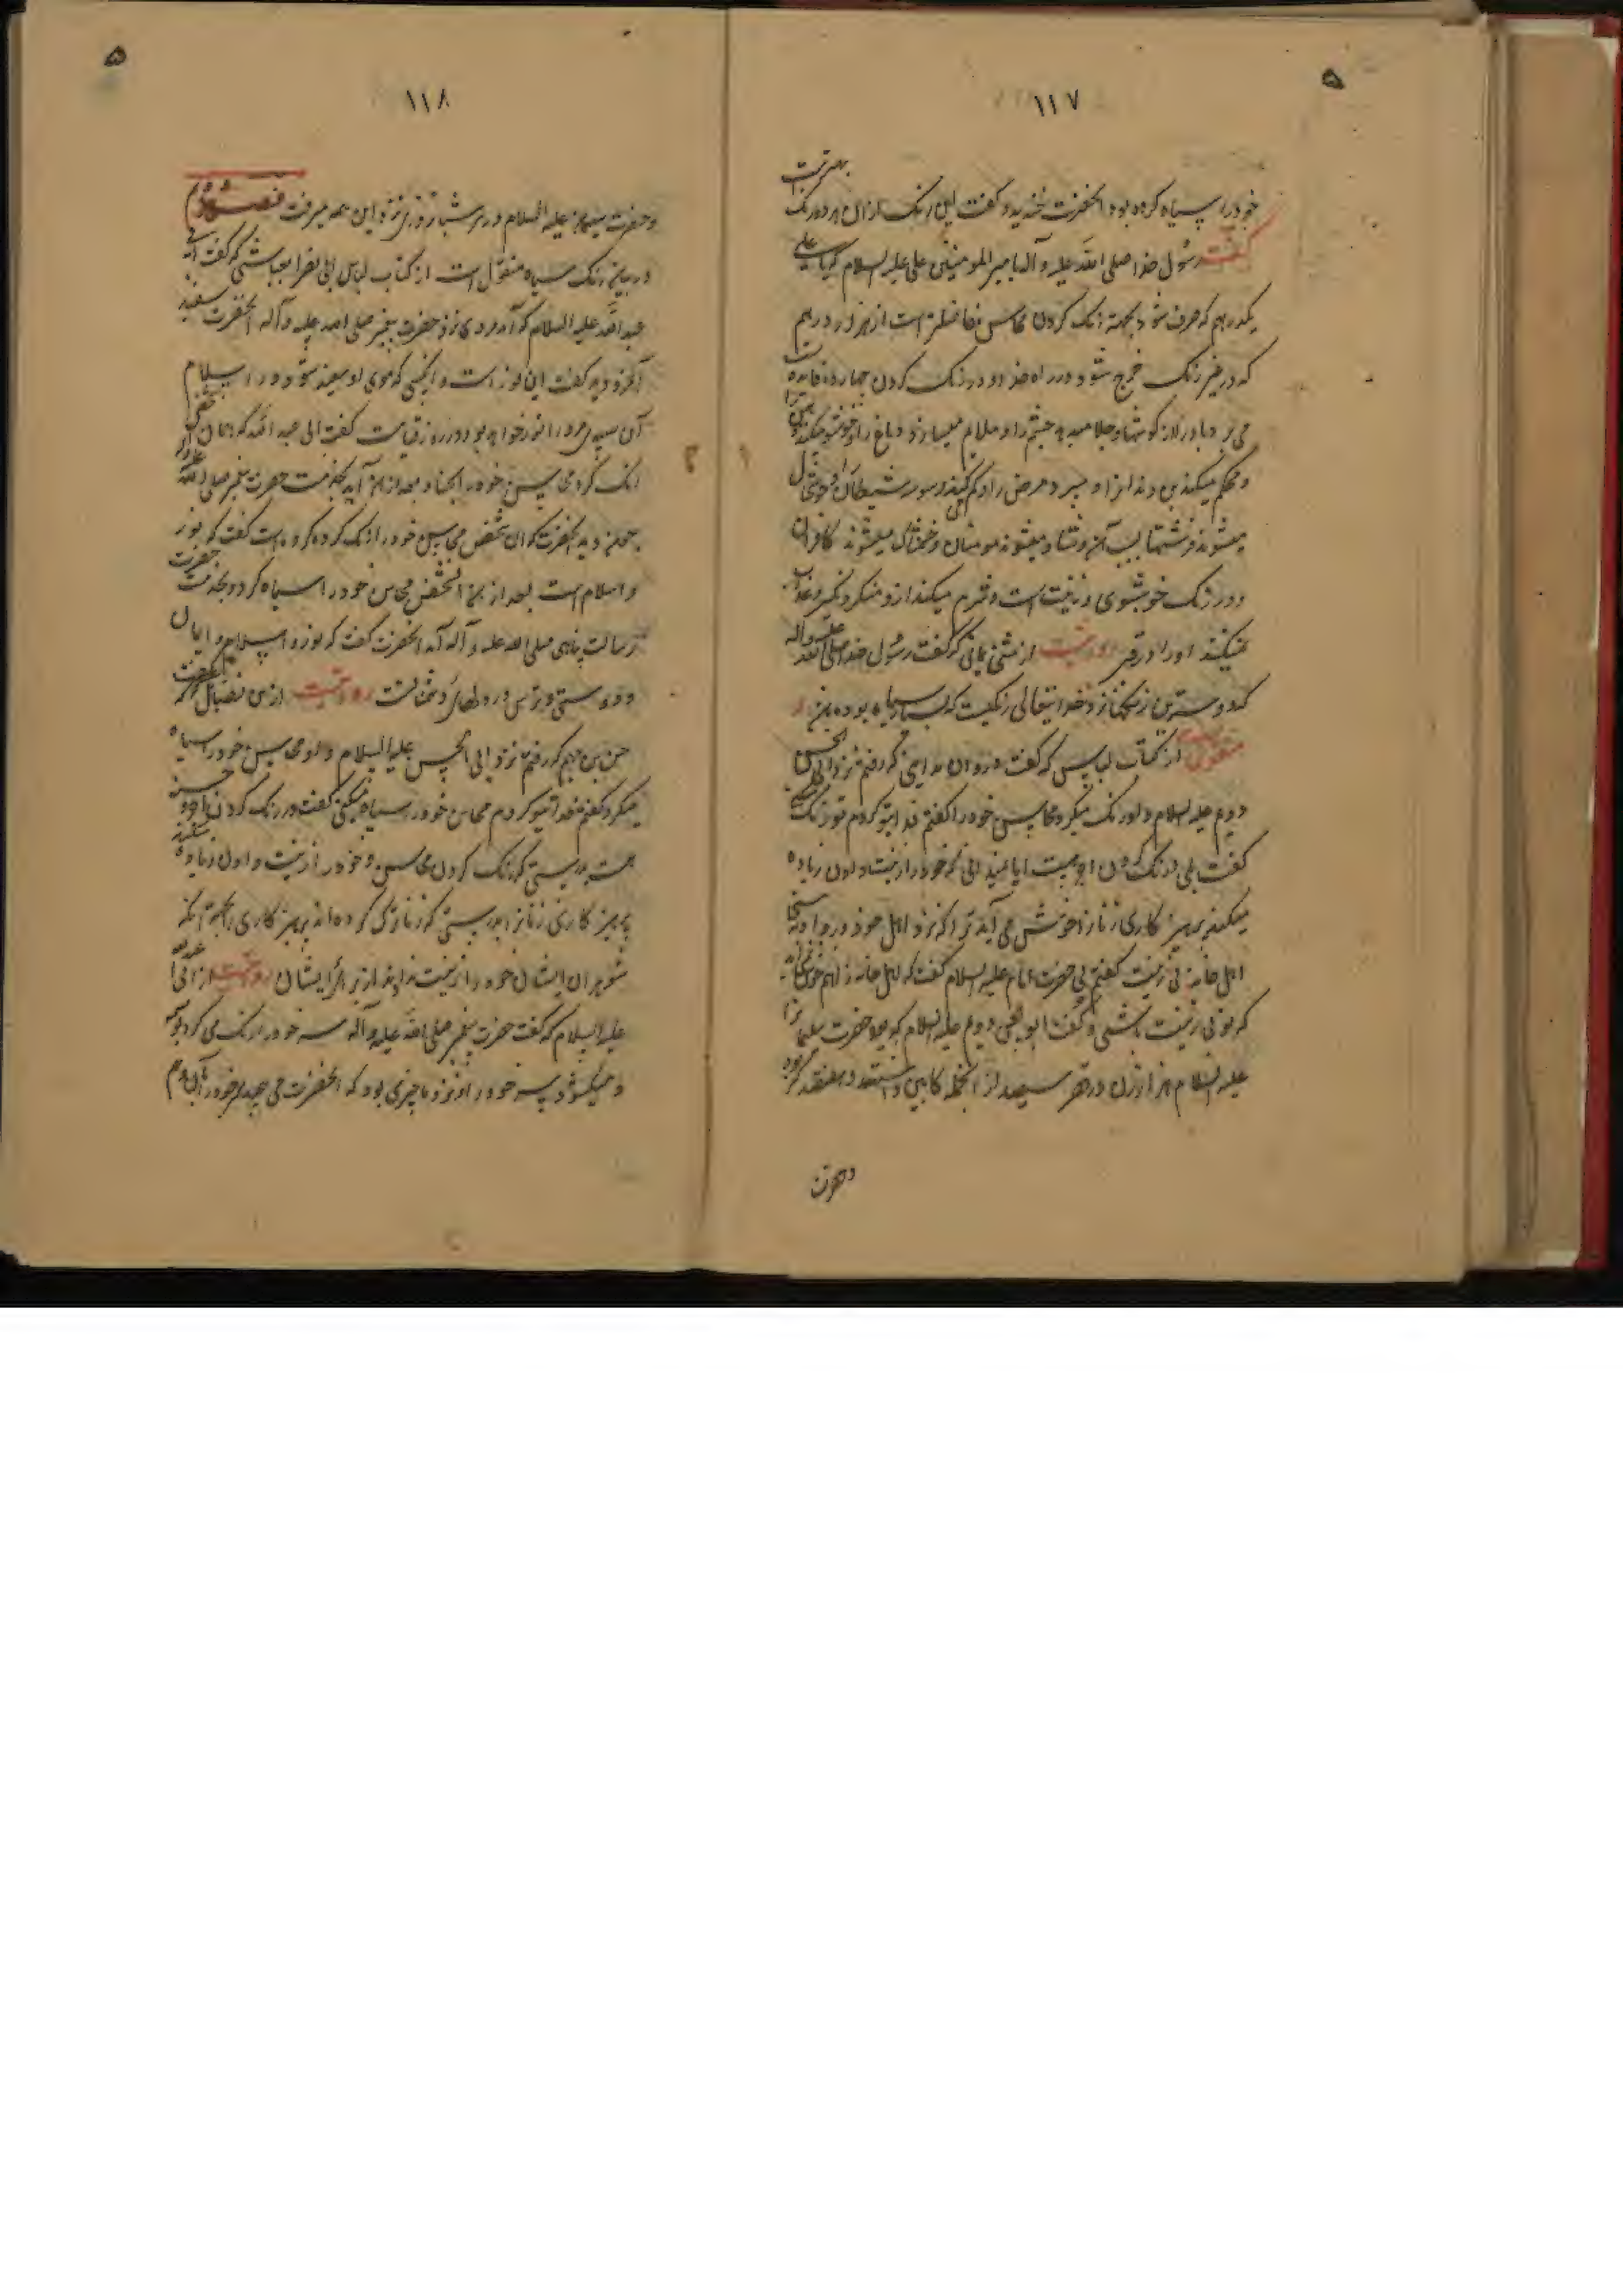 ۵
۱۱۷
خود را سیاه کرده بود آنحضرت خندید و گفت این رنگ از آن هر دو رنگ
بهتر است
گفت رسول خدا صلی الله علیه و آله با میر المومنین علی علیه السلام که یا علی
یکدرهم که صرف شود بجهة رنگ کردن محاسن فاضلتر است از هزار درهم
که در غیر رنگ خرج شود در راه خدا و در رنگ کردن چهارده فایده است
می برد باد را از گوشها و جلا میدهد چشم را و ملایم میسازد دماغ را و خوشبو میکند
و محکم میکند بن دندانرا و میبرد مرض را و کم میکند وسوسه شیطان و خوشحال
میشوند فرشتها بسبب آن و شاد میشوند مومنان و خشمناک میشوند کافران
و در رنگ خوشبوی و زینت است و شرم میکند ازو منکر و نکیر و عذاب
نمیکنند او را در قبر روایت از گفت رسول خدا صلی الله علیه و اله
که دوسترین رنگها نزد خدایتعالی رنگیست که بسیار سیاه بوده
منقول از کتاب لباس که گفت که رفتم نزد ابی الحسن
دویم علیه السلام و او رنگ میکرد محاسن خود را گفتم فدایتو کردم تو رنگ
گفت بلی در رنگ کردن اجریست ایا نمیدانی که خود را زینت دادن زیاده
میکند پرهیز کاری زنان را خوش می آید ترا که نزد اهل خود در روی و
اهل خانه بی زینت گفتم نی حضرت امام علیه السلام گفت که اهل خانه را هم خوش نمی آید
که تو بی زینت باشی و گفت ابو الحسن دویم علیه السلام که بود حضرت سلیمان را
علیه السلام هزار زن در قصر سیصد از آنجمله کابین داشتند و هفتصد
و حضرت
۵
۱۱۸
و حضرت سلیمان علیه السلام در هر شبانروزی نزد این همه میرفت فصل دوم
در بیان رنگ سیاه منقول است از کتاب لباس ابی نضر عیاشی که گفت ابی
عبد الله علیه السلام که آمد مردی نزد حضرت پیغمبر صلی الله علیه و آله آنحضرت سفیدی
آنمرد دید گفت این نور است و آنکسی که موی او سفید شود در اسلام
آن سپیدی مر او را نور خواهد بود در روز قیامت گفت ابی عبد الله که همان شخص
رنگ کرد محاسن خود را بحنا و بعد از آن آمد بخدمت حضرت پیغمبر صلی الله علیه و آله
چون دید آنحضرت که آن شخص محاسن خود را رنگ کرده است گفت که نور
و اسلام است بعد از آن آن شخص محاسن خود را سیاه کرد و بخدمت حضرت
رسالت پناهی صلی الله علیه و آله آمد آنحضرت گفت که نور و اسلام و ایمان
و دوستی و ترس در دلهای دشمنانست روایت از که گفت
حسن بن جهم که رفتم نزد ابی الحسن علیه السلام و او محاسن خود را سیاه
میکرد گفتم فدایتو کردم محاسن خود را سیاه میکنی گفت در رنگ کردن اجر
هست بدرستی که رنگ کردن محاسن و خود را زینت دادن زیاده میکند
پرهیز کاری زنانرا بدرستی که زنان ترک کرده اند پرهیز کاری را بجهة آنکه
شوهران ایشان خود را زینت نداده اند از برای ایشان روایت از ابی عبد الله
علیه السلام که گفت حضرت پیغمبر صلی الله علیه و آله سر خود را رنگ می کرد
و میکشود سر خود را و نزد ما چیزی بود که آنحضرت می خود را بآن